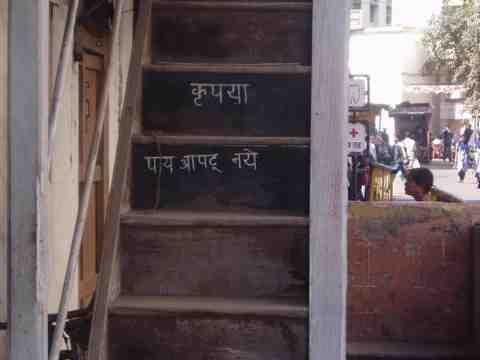 कृपया
पाय आपटू नये